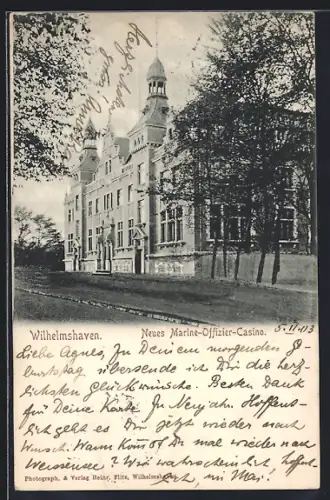 Herzlichsten
Wilhelmshaven. Neues Marine-Offizier-Casino.
5. II 03
Liebe Agnes, Zu Deinem morgenden Ge-
burtstag übersende ich Dir die herz-
lichsten Glückwünsche. Besten Dank
für Deine Karte zu Neujahr. Hoffent-
lich geht es Dir jetzt wieder nach
Wunsch. Wann kommst Du mal wieder nach
Weissensee? Wir wahrscheinlich, hoffent-
lich, im Mai.
Photograph. & Verlag Heinr. Wilhelmshaven.